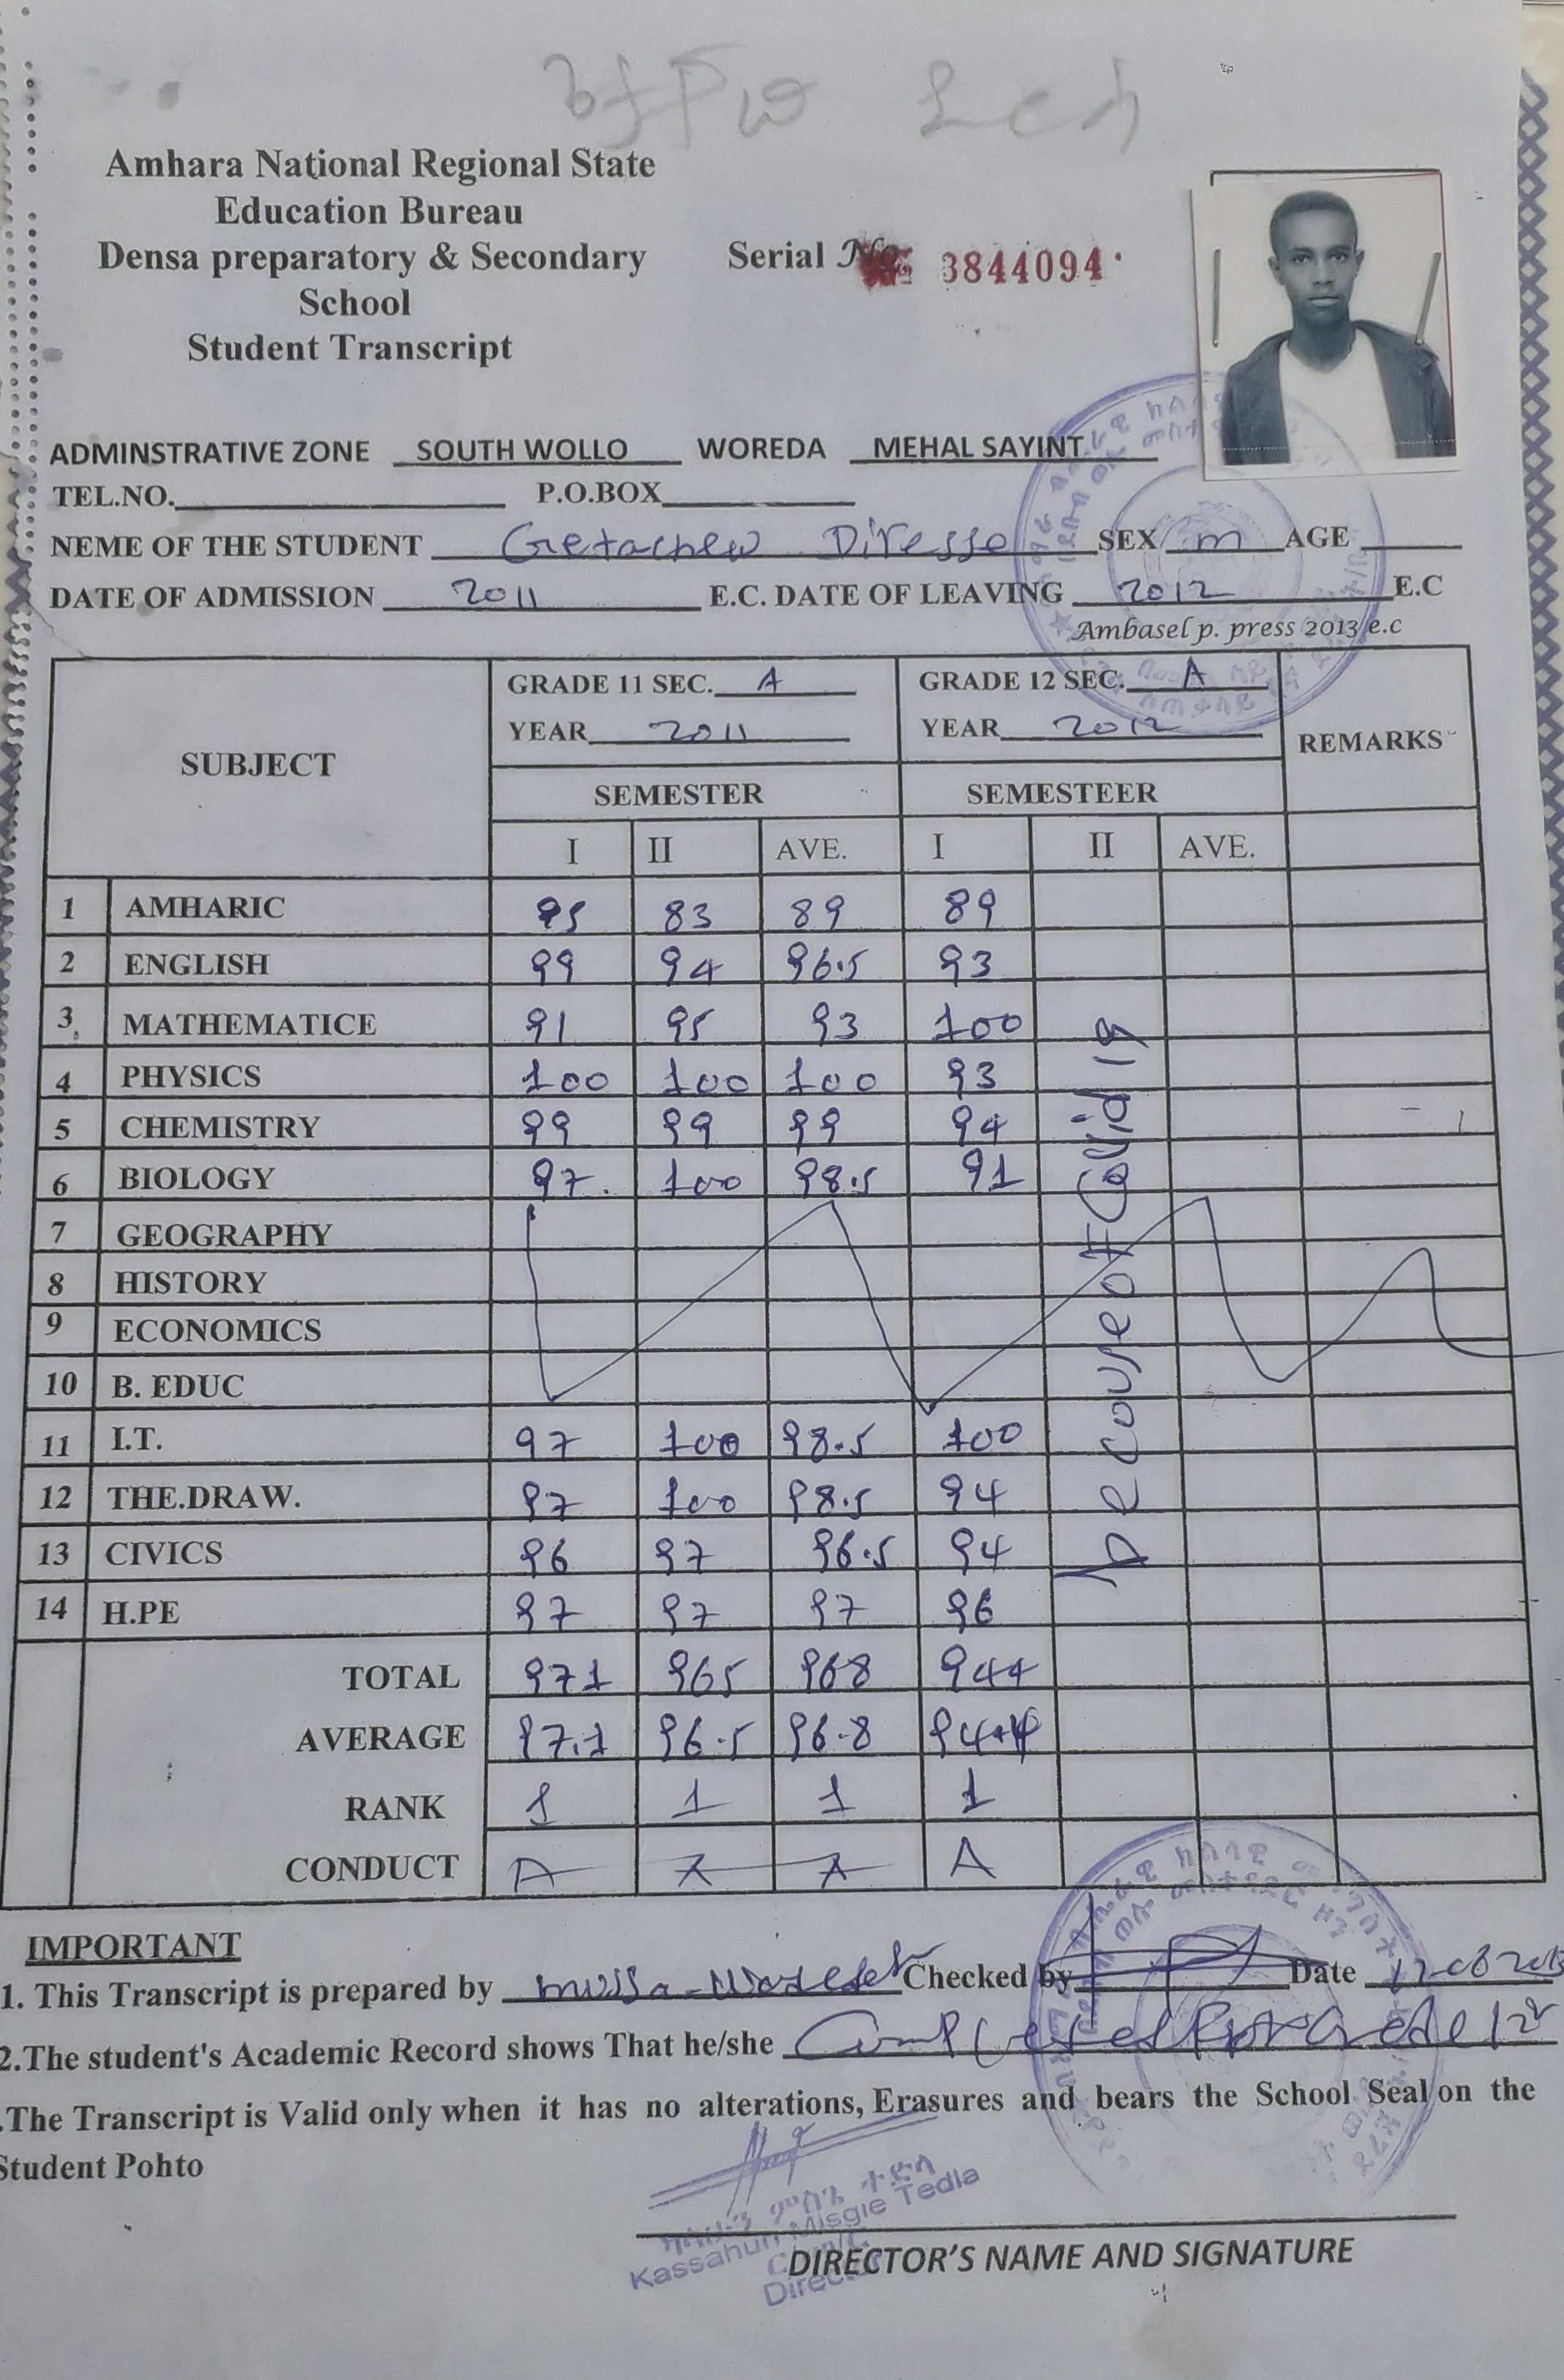 Amhara National Regional State
Education Bureau
Densa preparatory & Secondary
School
Student Transcript
Serial No 3844094
ADMINSTRATIVE ZONE SOUTH WOLLO WOREDA MEHAL SAYINT
TEL.NO. P.O.BOX
NEME OF THE STUDENT Getachew Diresse SEX m AGE
DATE OF ADMISSION 2011 E.C. DATE OF LEAVING 2012 E.C
Ambasel p. press 2013 e.c
SUBJECT GRADE 11 SEC. A GRADE 12 SEC. A REMARKS
YEAR 2011 YEAR 2012
SEMESTER SEMESTEER
I II AVE. I II AVE.
1 AMHARIC 95 83 89 89
2 ENGLISH 99 94 96.5 93
3 MATHEMATICE 91 95 93 100
4 PHYSICS 100 100 100 93
5 CHEMISTRY 99 99 99 94
6 BIOLOGY 97. 100 98.5 91
7 GEOGRAPHY
8 HISTORY
9 ECONOMICS
10 B. EDUC
11 I.T. 97 100 98.5 100
12 THE.DRAW. 97 100 98.5 94
13 CIVICS 96 97 96.5 94
14 H.PE 97 97 97 96
TOTAL 971 965 968 944
AVERAGE 97.1 96.5 96.8 94.4
RANK 1 1 1 1
CONDUCT A A A A
IMPORTANT
1. This Transcript is prepared by Checked by Date
2.The student's Academic Record shows That he/she
.The Transcript is Valid only when it has no alterations, Erasures and bears the School Seal on the
Student Pohto
Kassahun Misgie Tedla
Director
DIRECTOR'S NAME AND SIGNATURE